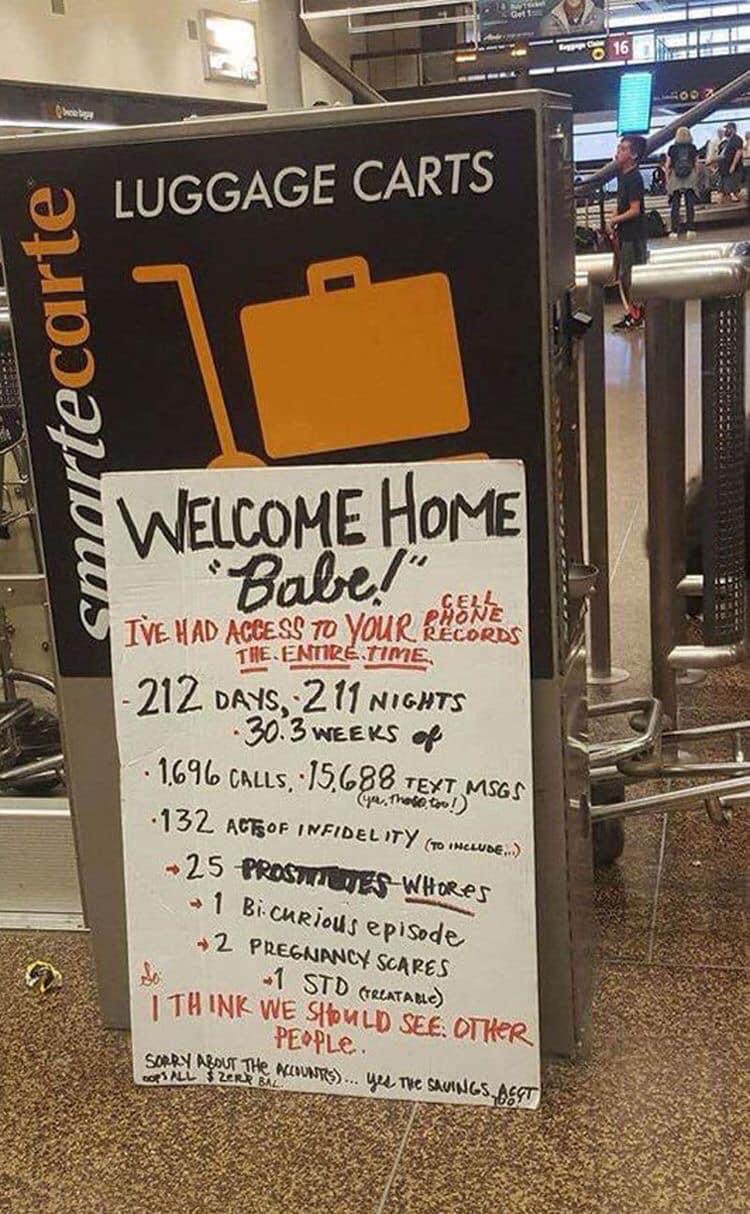 Baggage Claim 16
LUGGAGE CARTS
smartecarte
WELCOME HOME
"Babe!"
I'VE HAD ACCESS TO YOUR CELL PHONE RECORDS
THE ENTIRE TIME.
-212 DAYS, ·211 NIGHTS
·30.3 WEEKS of
·1,696 CALLS, ·15,688 TEXT MSGS
(yes, those too!)
·132 ACTS OF INFIDELITY (TO INCLUDE...)
→25 PROSTITUTES WHORES
→1 Bi-curious episode
→2 PREGNANCY SCARES
→1 STD (TREATABLE)
So
I THINK WE SHOULD SEE OTHER
PEOPLE.
SORRY ABOUT THE ACCOUNT(S)... yes THE SAVINGS ACCT
OOPS ALL $ ZERO BAL. TOO!